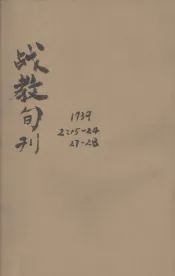 战教旬刊
1939
2:15-24
27-28